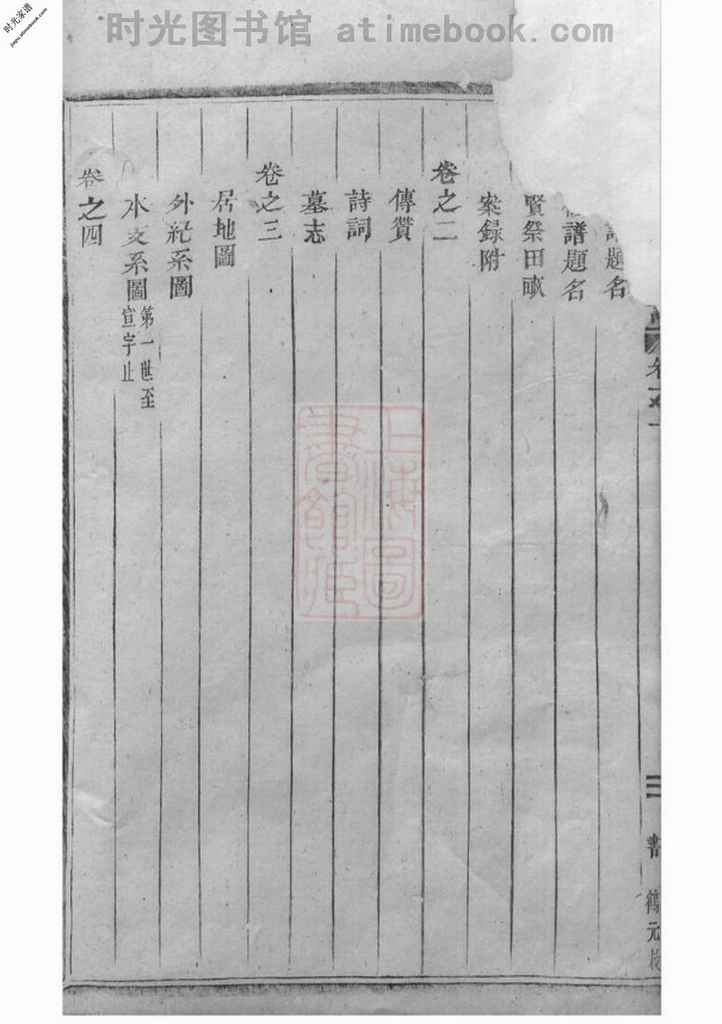 时光家谱
jiapu.atimebook.com
时光图书馆 atimebook.com
題名
譜題名
賢祭田畝
案録附
卷之二
傳贊
詩詞
墓志
卷之三
居地圖
外紀系圖
水支系圖 第一世至
宣字止
卷之四
卷之一
三
書
鶴元
上海圖
書館藏